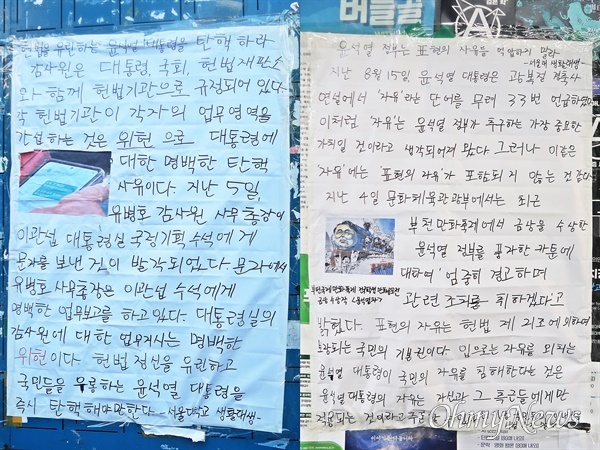 버틀꿀
헌법을 유린하는 윤석열 대통령을 탄핵 하라
감사원은 대통령, 국회, 헌법재판소
와 함께 헌법기관으로 규정되어 있다
각 헌법기관이 각자의 업무영역을
간섭 하는 것은 위헌 으로 대통령에
대한 명백한 탄핵
사유이다. 지난 5일,
유병호 감사원 사무총장이
이관섭 대통령실 국정기획 수석에게
문자를 보낸 것이 발각되었다. 문자에서
유병호 사무총장은 이관섭 수석에게
명백한 업무보고를 하고 있다. 대통령실의
감사원에 대한 업무지시는 명백한
위헌이다. 헌법 정신을 유린하고
국민들을 우롱하는 윤석열 대통령을
즉시 탄핵해야만한다 -서울대학교 생활대생-
윤석열 정부는 표현의 자유를 억압하지 말라
-서울대 생활대생
지난 8월15일 윤석열 대통령은 광복절 경축사
연설에서 '자유'라는 단어를 무려 33번 언급하였다
이처럼 '자유'는 윤석열 정부가 추구하는 가장 중요한
가치일 것이라고 생각되어져 왔다. 그러나 이같은
'자유'에는 '표현의 자유'가 포함되지 않는 것 같다
지난 4일 문화체육관광부에서는 최근
부천만화축제에서 금상을 수상한
윤석열 정부를 풍자한 카툰에
대하여 '엄중히 경고하며
관련 조치를 취하겠다'고
밝혔다. 표현의 자유는 헌법 제 21조에 의하여
보장되는 국민의 기본권이다. 입으로는 자유를 외치는
윤석열 대통령이 국민의 자유를 침해한다는 것은
윤석열 대통령의 자유는 자신과 그 측근들에게만
적용되는 것이라고
OhmyNews